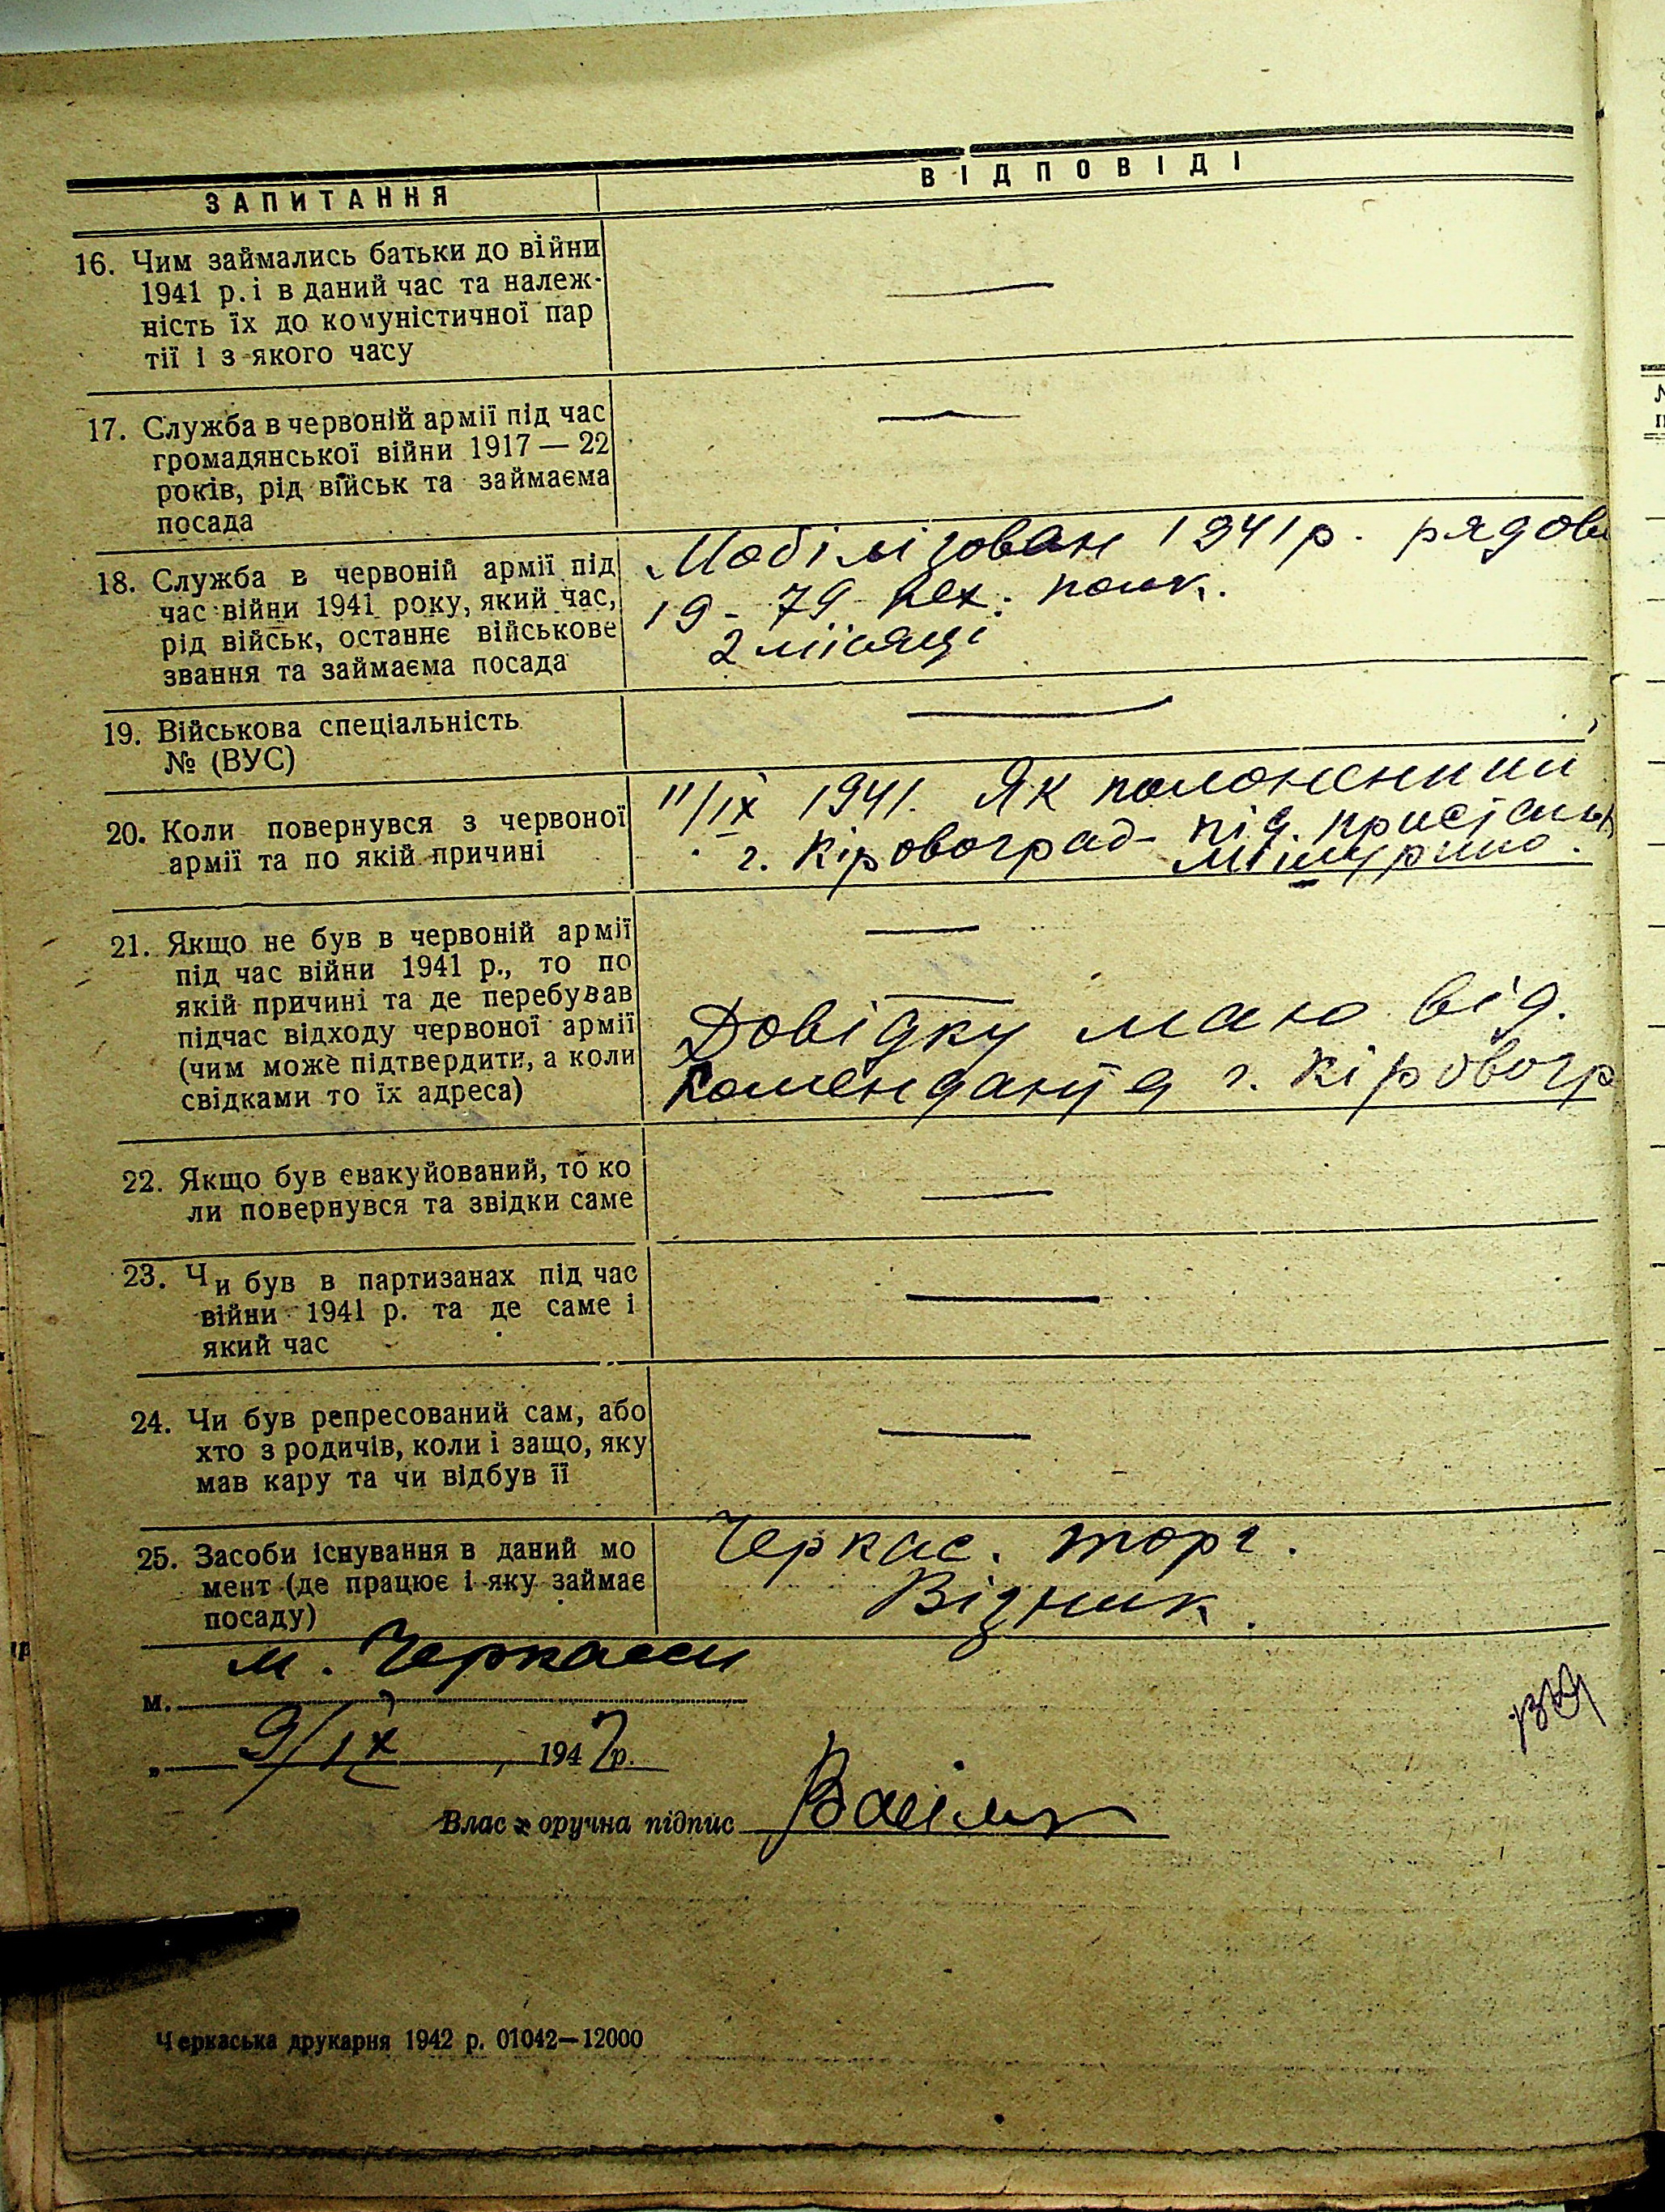 ЗАПИТАННЯ
ВІДПОВІДІ
16. Чим займались батьки до війни
1941 р. і в даний час та належ-
ність їх до комуністичної пар
тії і з якого часу
—
17. Служба в червоній армії під час
громадянської війни 1917—22
років, рід військ та займаєма
посада
—
18. Служба в червоній армії під
час війни 1941 року, який час,
рід військ, останнє військове
звання та займаєма посада
Мобілізован 1941 р. рядови
19 - 79 пех. полк.
2 місяці
19. Військова спеціальність
№ (ВУС)
—
20. Коли повернувся з червоної
армії та по якій причині
11/IX 1941. Як полоненний
г. Кіровоград під.
21. Якщо не був в червоній армії
під час війни 1941 р., то по
якій причині та де перебував
підчас відходу червоної армії
(чим може підтвердити, а коли
свідками то їх адреса)
—
—
Довідку маю від.
Коменданта г. Кіровогр
22. Якщо був евакуйований, то ко
ли повернувся та звідки саме
—
23. Чи був в партизанах під час
війни 1941 р. та де саме і
який час
—
24. Чи був репресований сам, або
хто з родичів, коли і защо, яку
мав кару та чи відбув її
—
25. Засоби існування в даний мо
мент (де працює і яку займає
посаду)
Черкас. торг.
Візник.
м. м. Черкасси
„ 9/IX 1942 р.
Влас оручна підпис
Черкаська друкарня 1942 р. 01042—12000